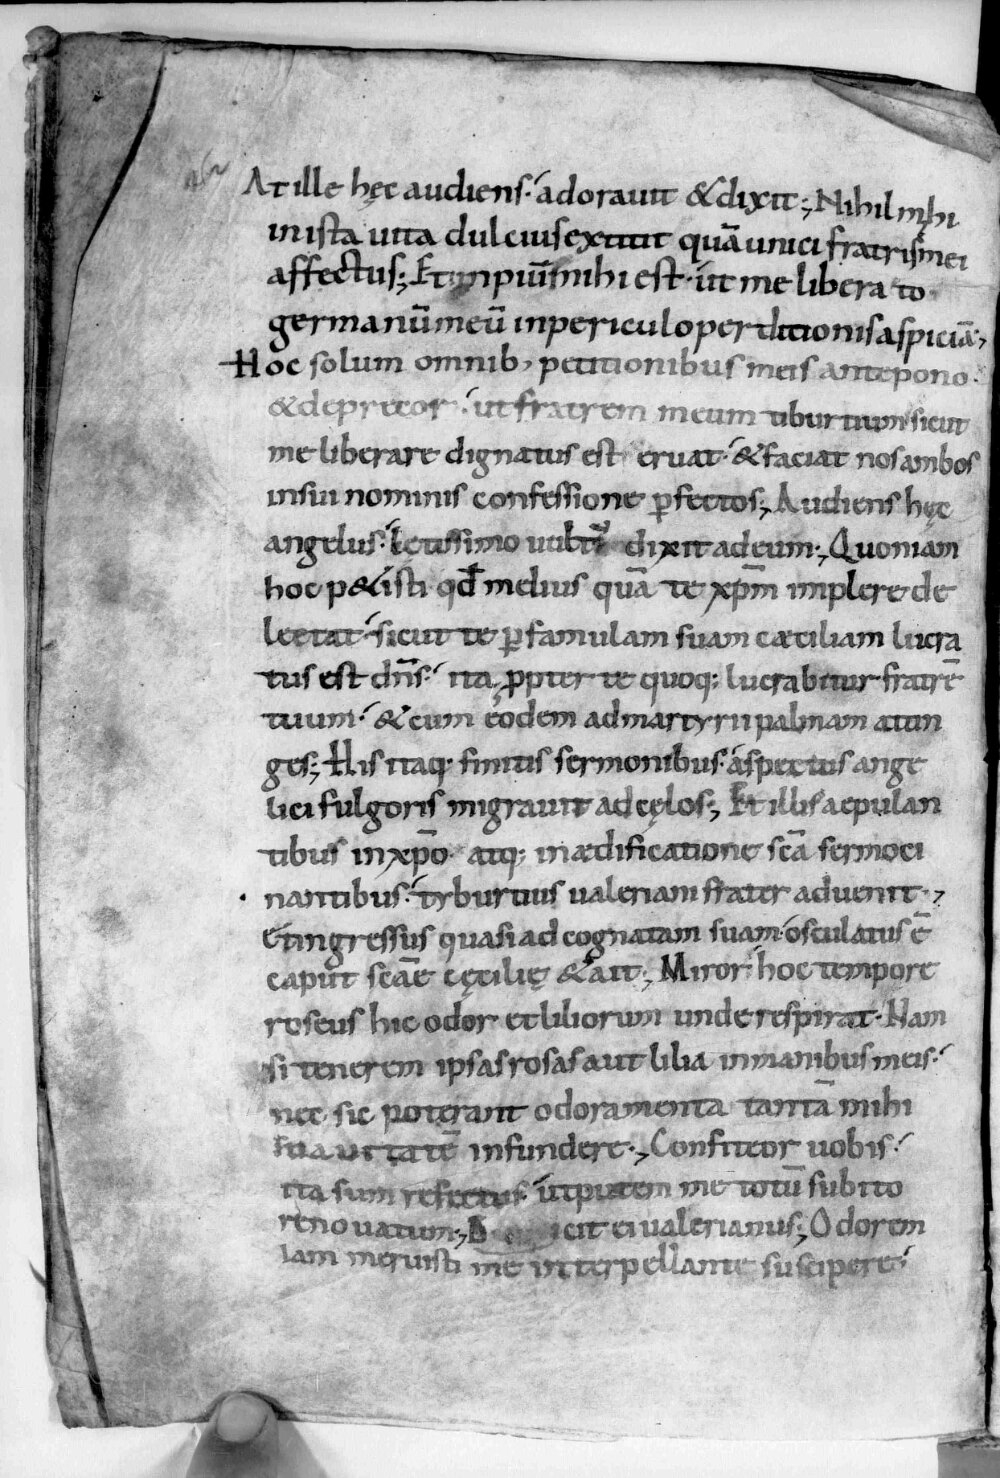 At ille hęc audiens · adorauit & dixit ; Nihil mihi
in ista uita dulcius extitit quā unici fratris mei
affectus ; Et inpiū mihi est · ut me liberato
germanū meū in periculo perditionis aspiciā ;
Hoc solum omnib; petitionibus meis antepono ·
& deprecor · ut fratrem meum tiburtium sicut
me liberare dignatus est eruat · & faciat nos ambos
in sui nominis confessione p̄fectos ; Audiens hęc
angelus · letissimo uultu dixit ad eum ; Quoniam
hoc p&isti qđ melius quā te xp̄m implere de
lectat · sicut te p̄ famulam suam cæciliam lucra
tus est dn̄s · ita ꝓpter te quoq; lucrabitur fratrē
tuum · & cum eodem ad martyrii palmam attin
ges ; His itaq; finitis sermonibus · aspectus ange
lici fulgoris migrauit ad cęlos ; Et illis aepulan
tibus in xp̄o · atq; in ædificatione sc̄a sermoci
nantibus · tyburtius ualeriani frater aduenit ·,
Et ingressus quasi ad cognatam suam · osculatus ē
caput sc̄ae cęcilię & ait ; Miror · hoc tempore
roseus hic odor et liliorum unde respirat · Nam
si tenerem ipsas rosas aut lilia in manibus meis ·
nec sic poterant odoramenta tantā mihi
suauitatē infundere ·, Confiteor uobis ·
ita sum refectus · ut putem me totū subito
renouatum ; icit ei ualerianus ; Odorem
iam meruisti me interpellante suscipere ·